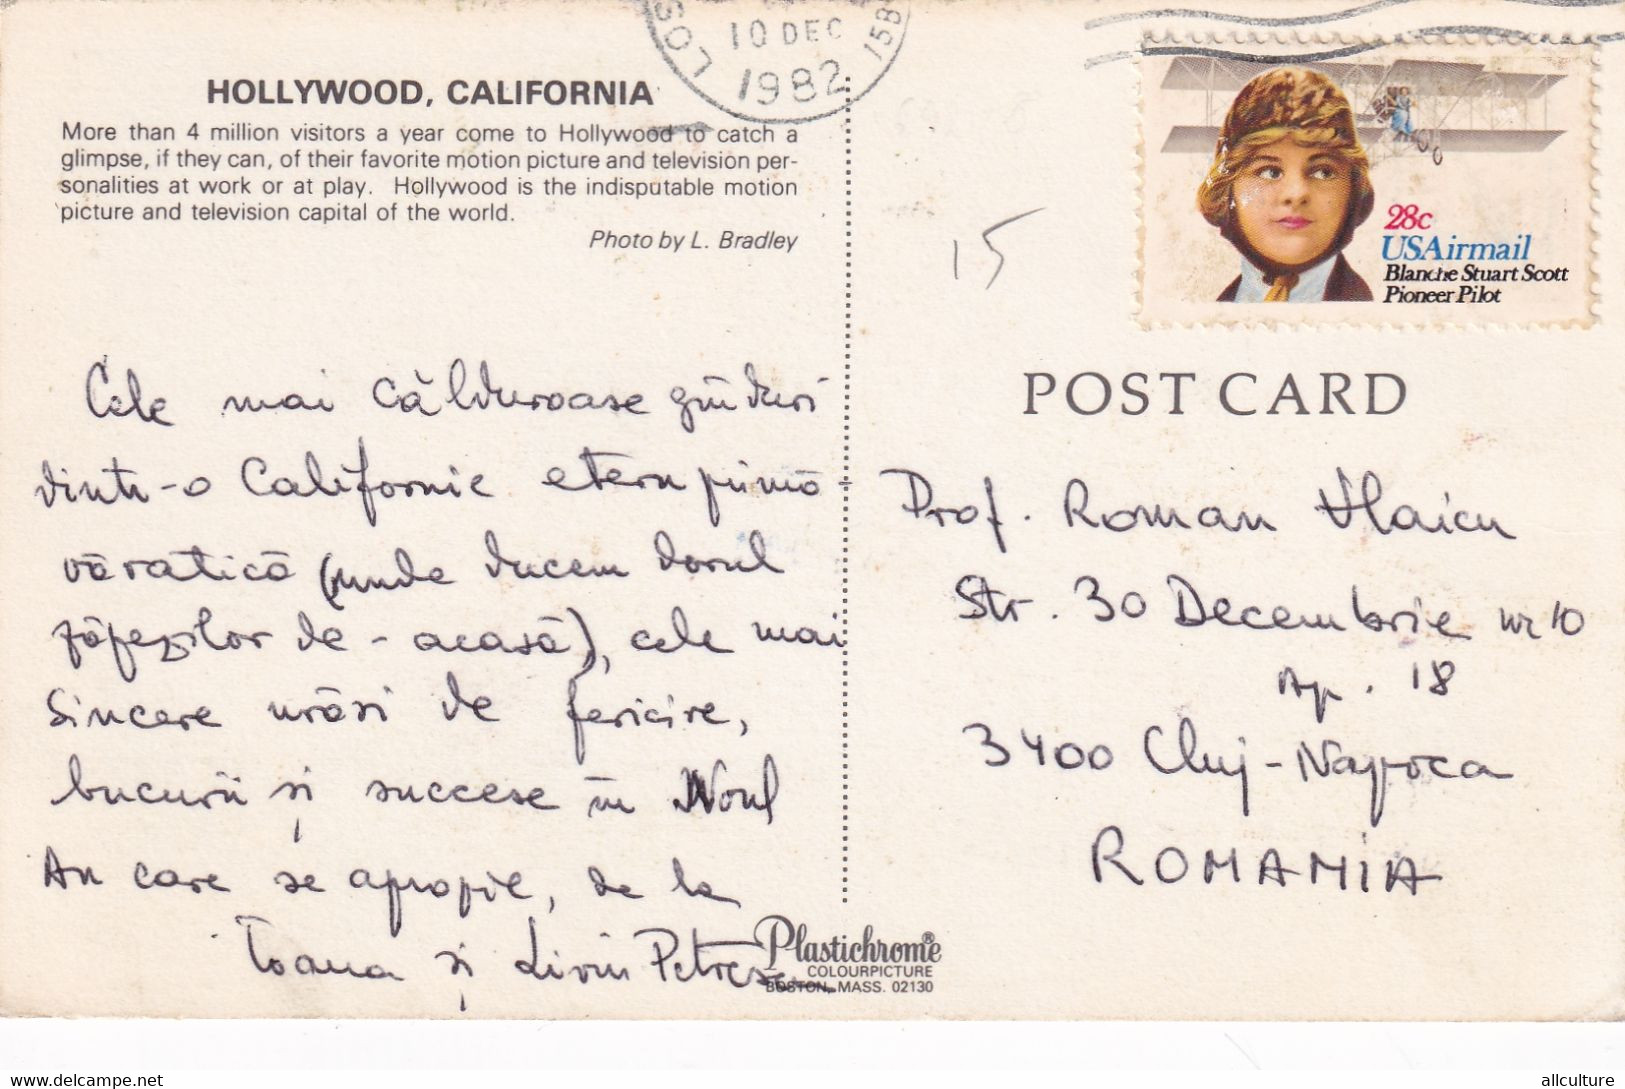 LOS
10 DEC
1982
15B
HOLLYWOOD, CALIFORNIA
More than 4 million visitors a year come to Hollywood to catch a
glimpse, if they can, of their favorite motion picture and television per-
sonalities at work or at play. Hollywood is the indisputable motion
picture and television capital of the world.
Photo by L. Bradley
28c
USAirmail
Blanche Stuart Scott
Pioneer Pilot
15
POST CARD
Cele mai călduroase gînduri
dintr-o Californie etern primă-
văratică (unde ducem dorul
zăpezilor de-acasă), cele mai
sincere urări de fericire,
bucurii și succese în Noul
An care se apropie, de la
Ioana și Liviu Petrescu
Prof. Roman Vlaicu
Str. 30 Decembrie nr 10
Ap. 18
3400 Cluj-Napoca
ROMANIA
Plastichrome®
COLOURPICTURE
BOSTON, MASS. 02130
allculture
delcampe.net